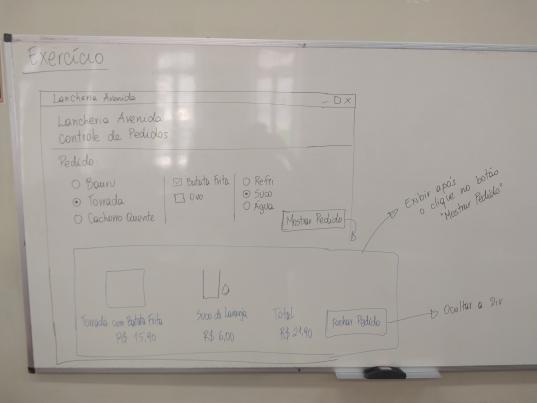 Exercício
Lancheria Avenida - O X
Lancheria Avenida
Controle de Pedidos
Pedido
Bauru
Torrada
Cachorro Quente
Batata Frita
Ovo
Refri
Suco
Água
Mostrar Pedido
Exibir após
o clique no botão
"Mostrar Pedido"
Torrada com Batata Frita
R$ 15,90
Suco de Laranja
R$ 6,00
Total
R$ 21,90
Fechar Pedido
Ocultar a Div